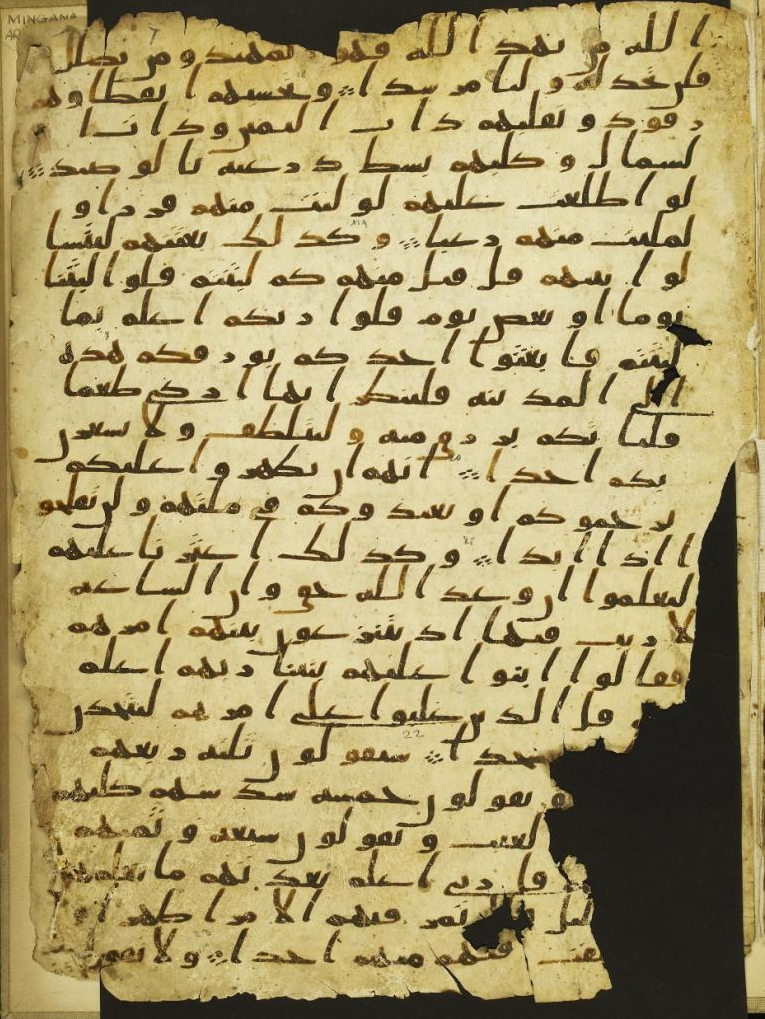 MINGANA
AR
7
ا لله من يهد ا لله فهو المهتد ومن يضلل
فلن تجد له وليا مرشدا وتحسبهم ايقظا وهم
رقود ونقلبهم ذات اليمين وذات ا
لشمال وكلبهم بسط ذرعيه بالوصيد
لو اطلعت عليهم لوليت منهم فررا و
لملئت منهم رعبا وكذلك بعثنهم ليتسا
لوا بينهم قل قيل منهم كم لبثتم قلوا لبثنا
يوما او بعض يوم قلوا ربكم اعلم بما
لبثتم فابعثوا احدكم بورقكم هذه
الى المدينه فلينظر ايها ازكى طعما
فلياتكم برزق منه وليتلطف ولا يشعرن
بكم احدا انهم ان يظهروا عليكم
يرجموكم او يعيدوكم في ملتهم ولن تفلحو
ا اذا ابدا وكذلك اعثرنا عليهم
ليعلموا ان وعد الله حق وان الساعه
لا ريب فيها اذ يتنزعون بينهم امرهم
فقالوا ابنوا عليهم بنينا ربهم اعلم
قل الذين غلبوا على امرهم لنتخذن
22
سجدا سيقولون ثلثه ربعهم
ويقولون خمسه سدسهم كلبهم
لغيب ويقولون سبعه وثمنهم
قل ربي اعلم بعدتهم ما يعلمهم
ليل فلا تمر فيهم الا مرا ظهرا
تفت فيهم منهم احدا ولا تقولن